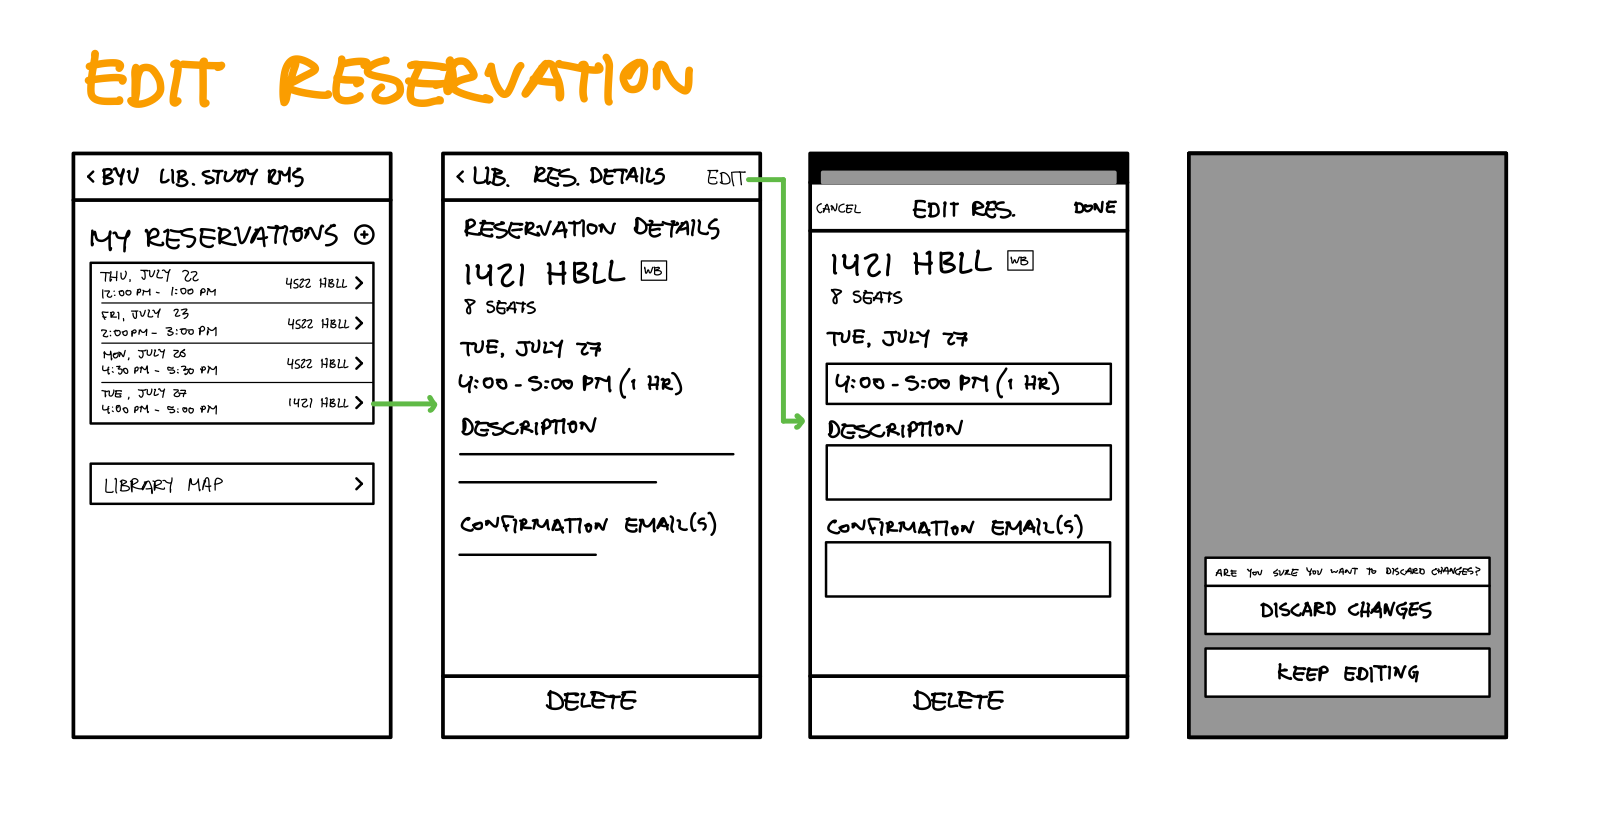 EDIT RESERVATION
< BYU LIB. STUDY RMS
MY RESERVATIONS +
THU, JULY 22
12:00 PM - 1:00 PM
4522 HBLL >
FRI, JULY 23
2:00 PM - 3:00 PM
4522 HBLL >
MON, JULY 26
4:30 PM - 5:30 PM
4522 HBLL >
TUE, JULY 27
4:00 PM - 5:00 PM
1421 HBLL >
LIBRARY MAP >
< LIB. RES. DETAILS EDIT
RESERVATION DETAILS
1421 HBLL WB
8 SEATS
TUE, JULY 27
4:00 - 5:00 PM (1 HR)
DESCRIPTION
CONFIRMATION EMAIL(S)
DELETE
CANCEL EDIT RES. DONE
1421 HBLL WB
8 SEATS
TUE, JULY 27
4:00 - 5:00 PM (1 HR)
DESCRIPTION
CONFIRMATION EMAIL(S)
DELETE
ARE YOU SURE YOU WANT TO DISCARD CHANGES?
DISCARD CHANGES
KEEP EDITING